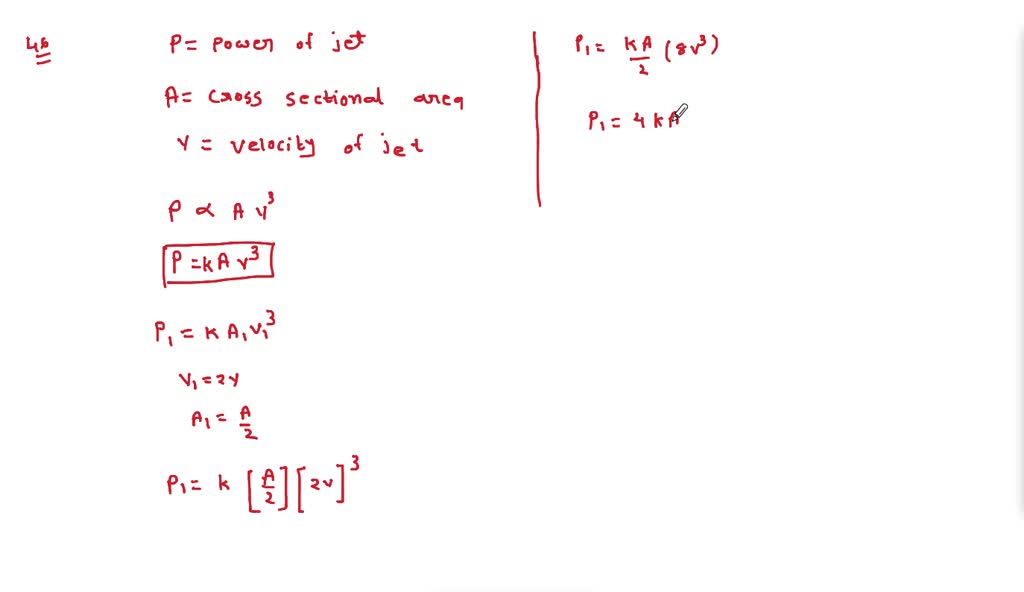 46
P = power of jet
A = cross sectional area
V = velocity of jet
P ∝ A V³
P = k A v³
P₁ = k A₁ V₁³
V₁ = 2V
A₁ = A/2
P₁ = k [A/2] [2v]³
P₁ = kA/2 (8v³)
P₁ = 4 k A